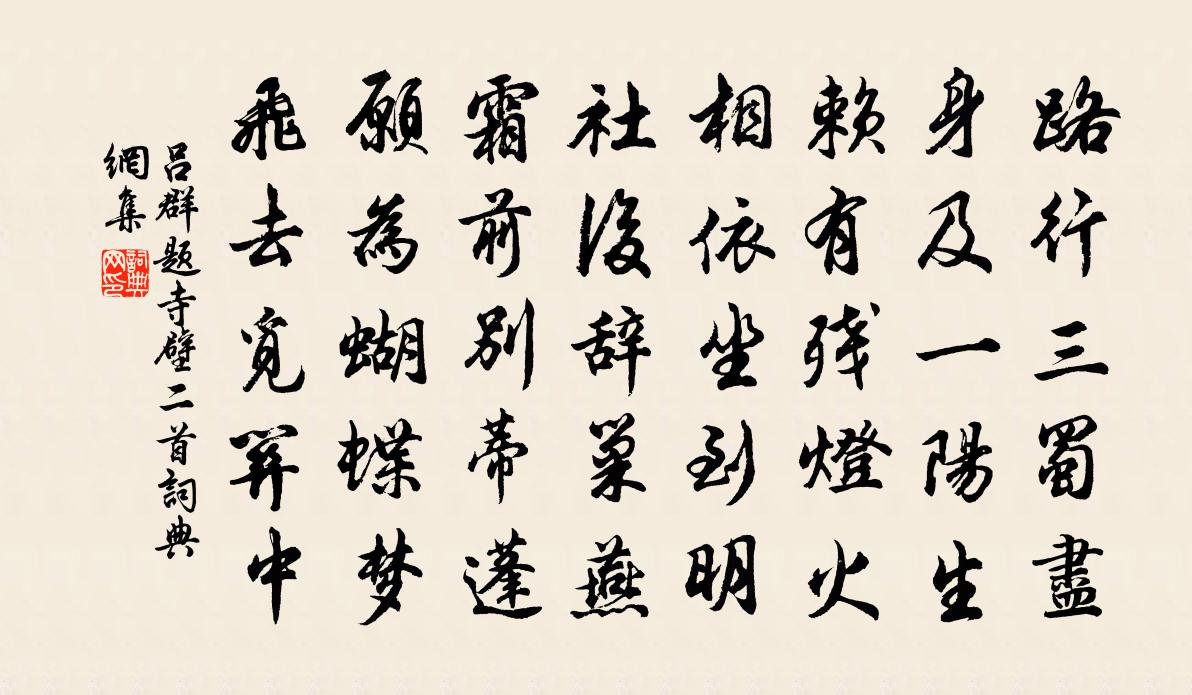 路行三蜀盡
身及一陽生
賴有残燈火
相依坐到明
社後辞巢燕
霜前別蒂蓬
願為蝴蝶梦
飛去覓関中
呂群題寺壁二首詞典
網集
詞典
网印